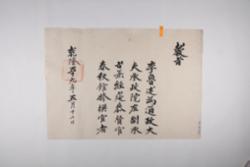 敎旨
李魯爲通政大
夫承政院左副承
旨兼經筵參贊官
春秋館修撰官者
乾隆十九年月十日